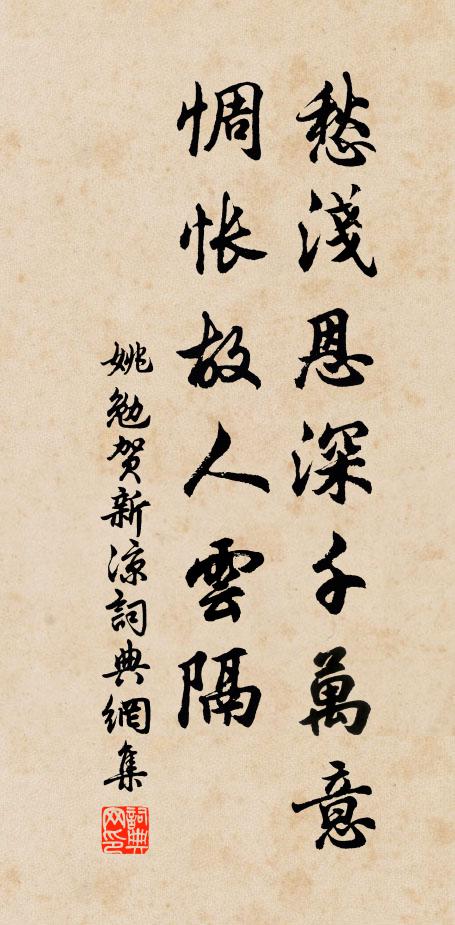 愁淺恩深千萬意
惆悵故人雲隔
姚勉賀新涼詞典網集
詞典网印